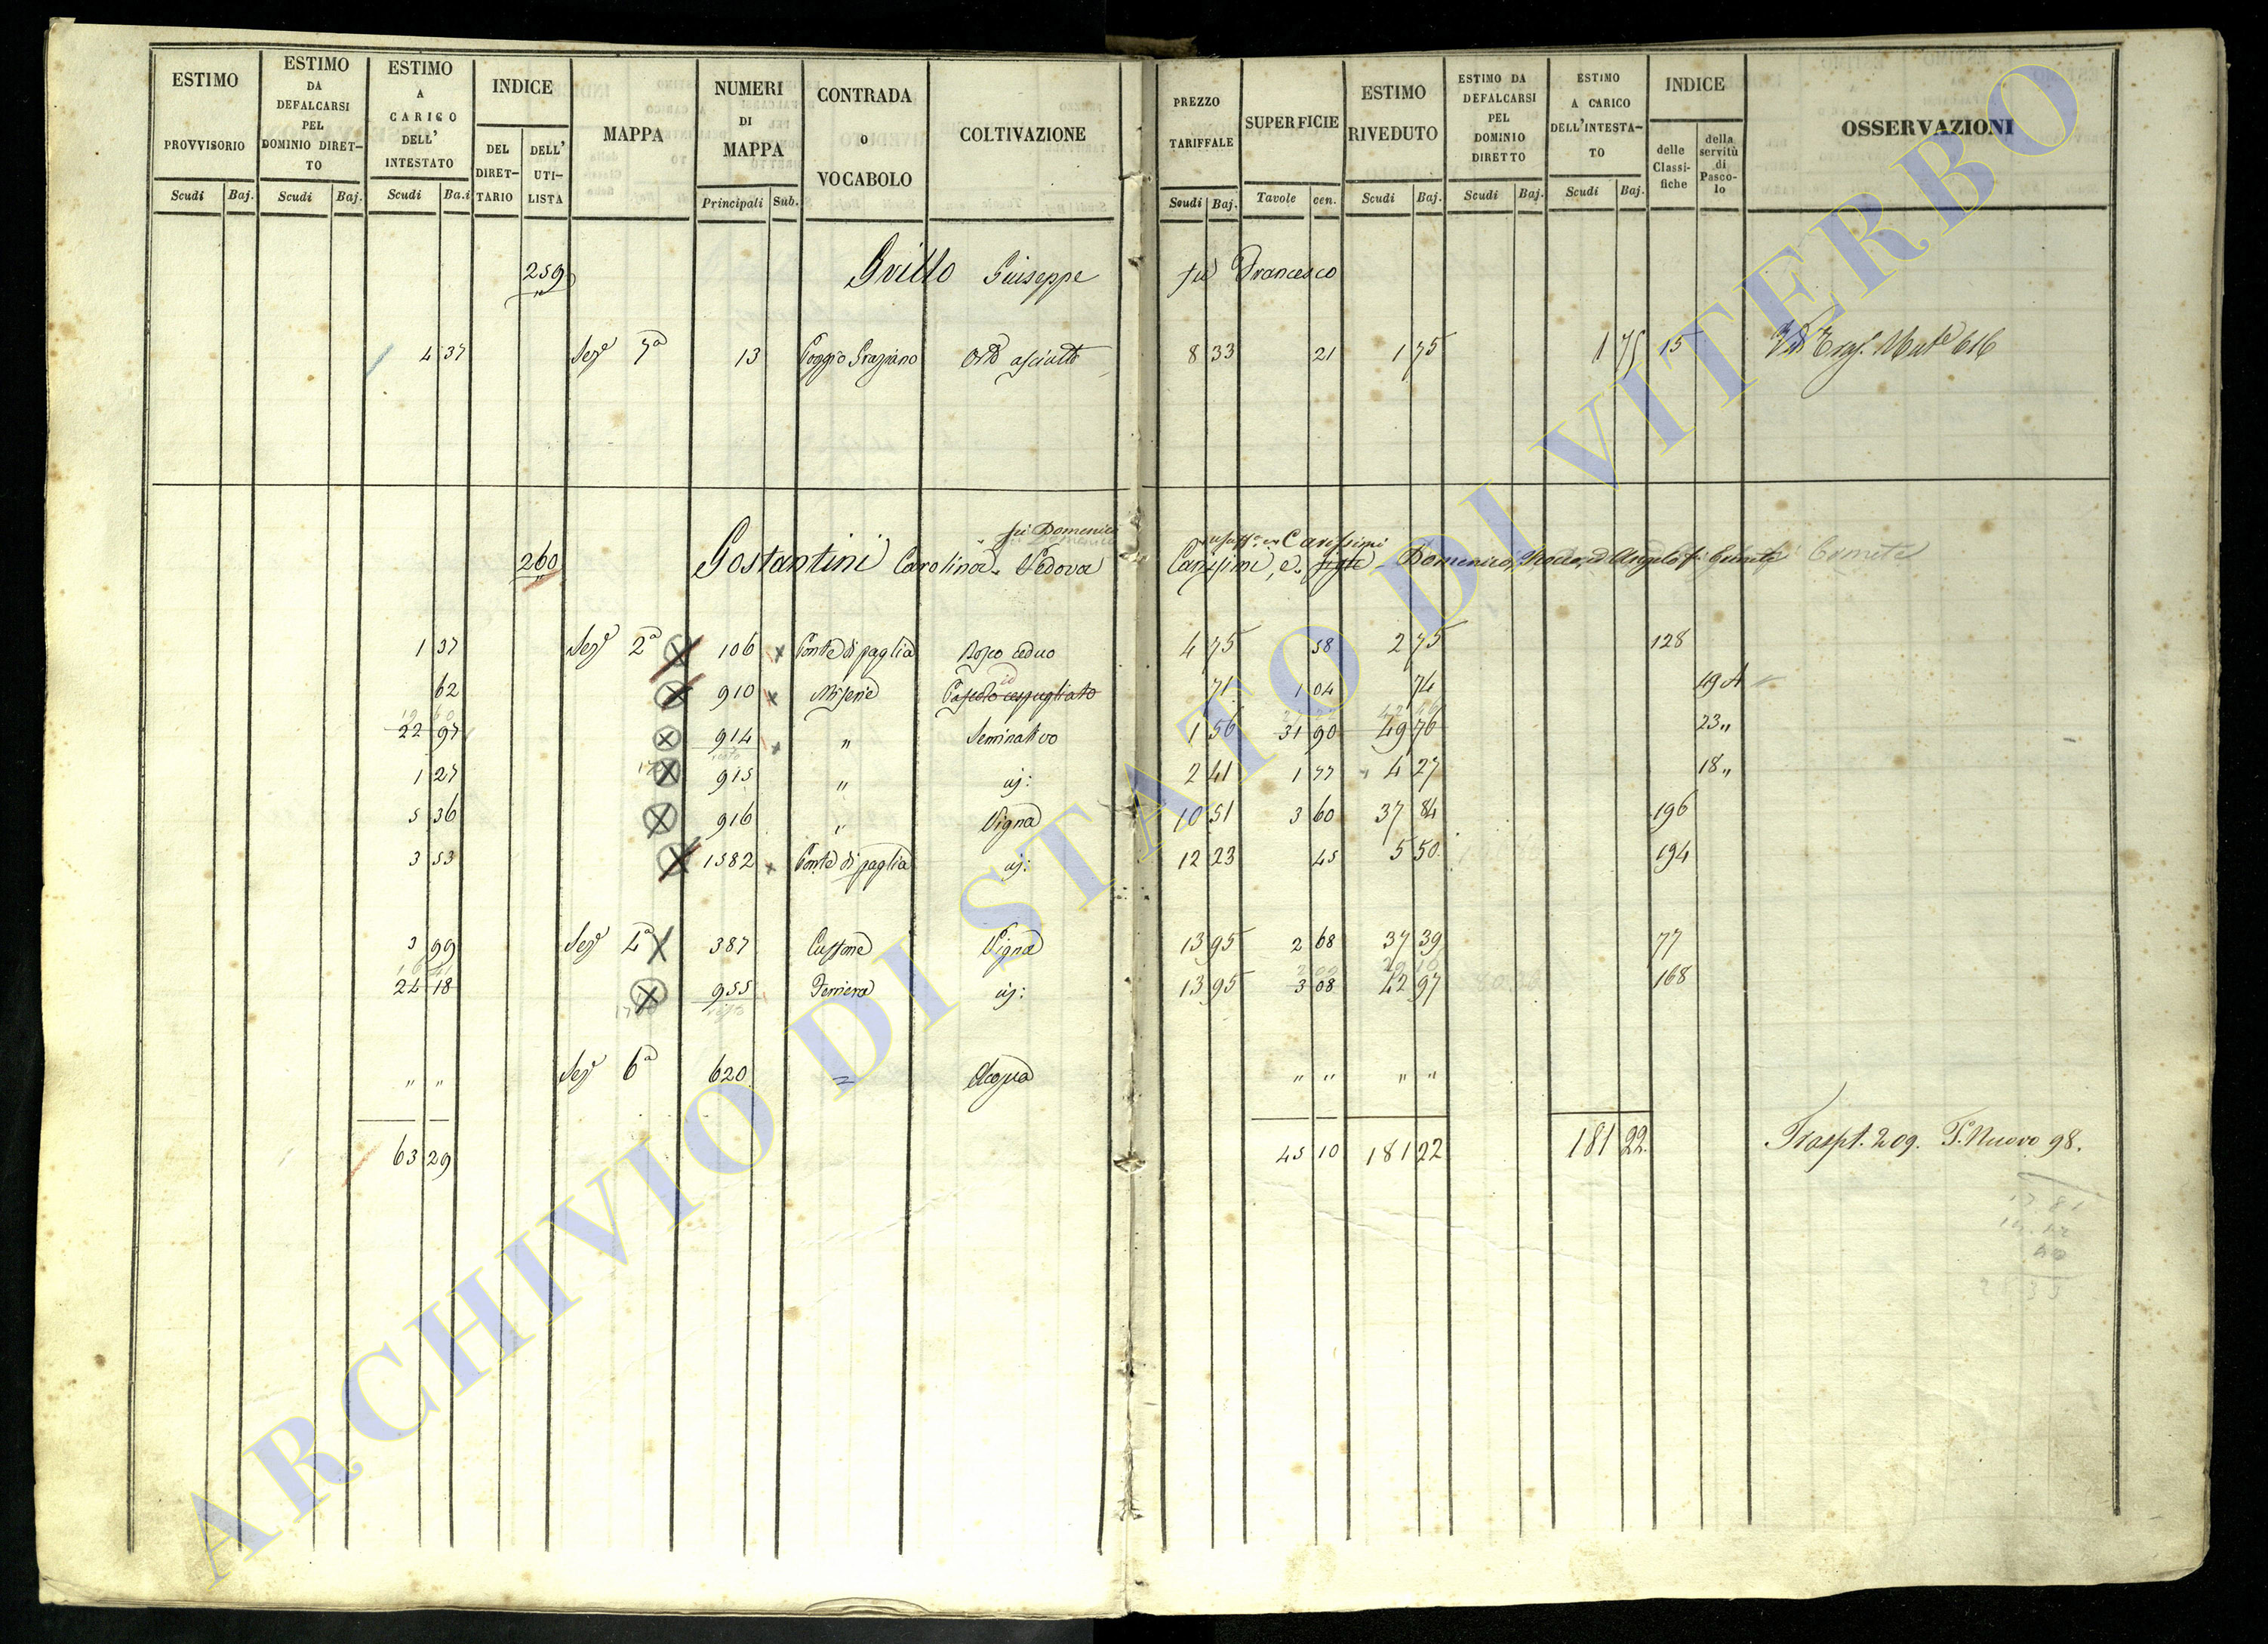 ESTIMO PROVVISORIO
ESTIMO DA DEFALCARSI PEL DOMINIO DIRET-TO
ESTIMO A CARICO DELL' INTESTATO
INDICE
DEL DIRET-TARIO
DELL' UTI-LISTA
MAPPA
NUMERI DI MAPPA
CONTRADA o VOCABOLO
COLTIVAZIONE
PREZZO TARIFFALE
SUPERFICIE
ESTIMO RIVEDUTO
ESTIMO DA DEFALCARSI PEL DOMINIO DIRETTO
ESTIMO A CARICO DELL'INTESTA-TO
INDICE
delle Classi-fiche
della servitù di Pasco-lo
OSSERVAZIONI
Scudi Baj. Scudi Baj. Scudi Ba.i Principali Sub. Scudi Baj. Tavole cen. Scudi Baj. Scudi Baj. Scudi Baj.
259 Grillo Giuseppe fu Francesco
4 37 Sez.e 7a 13 Poggio Graziano Orto asciutto 8 33 21 1 75 1 75 15 616
fu Domenico Carissimi
260 Costantini Carolina Vedova Carissimi, e figli Domenico, ed Angelo fu Ermete Ermete
1 37 Sez.e 2a 106 Ponte di paglia Bosco ceduo 4 75 58 2 75 128
62 910 Miserie Pascolo cespugliato 71 1 04 74 49 A
22 97 914 " Seminativo 1 56 31 90 49 76 23 "
1 27 915 " id: 2 41 1 77 4 27 18 "
5 36 916 " Vigna 10 51 3 60 37 84 196
3 53 1582 Ponte di paglia id: 12 23 45 5 50 194
3 99 Sez.e 4a 387 Vigna 13 95 2 68 37 39 77
24 18 955 id: 13 95 3 08 42 97 168
" " Sez.e 6a 620 = Acqua " " " "
63 29 45 10 181 22 181 22 Traspt. 209. P. Nuovo 98.
ARCHIVIO DI STATO DI VITERBO